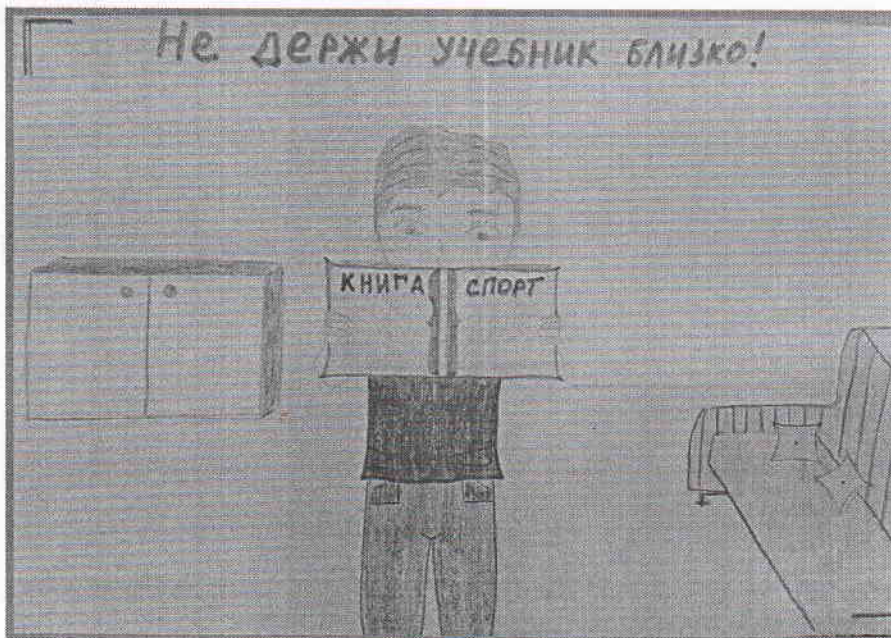 Не держи учебник близко!
КНИГА СПОРТ